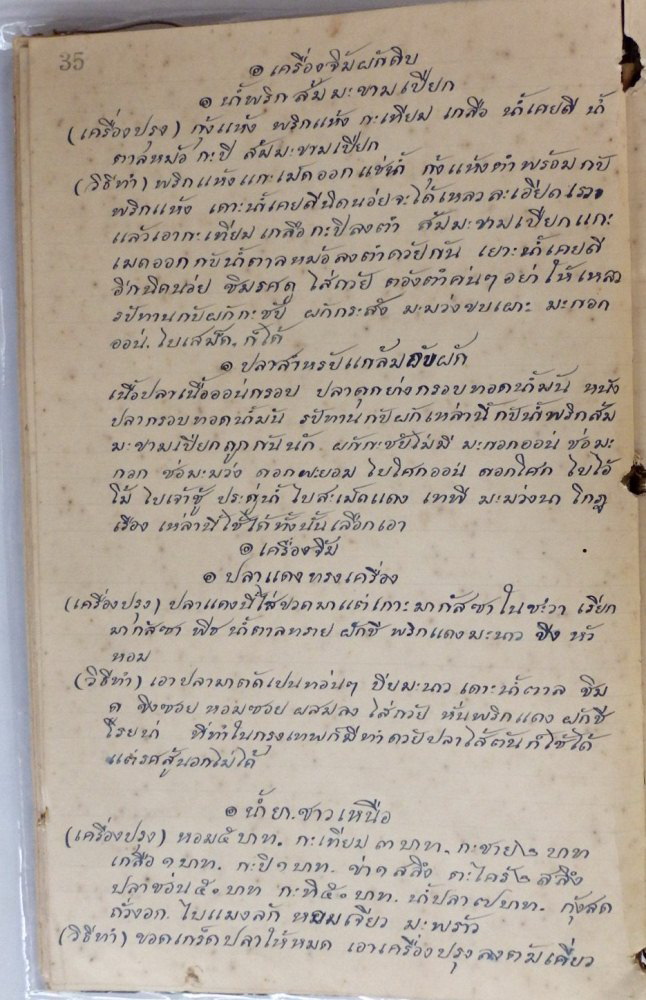 35
๏ เครื่องจิ้มผักดิบ
๏ น้ำพริกส้มมะขามเปียก
(เครื่องปรุง) กุ้งแห้ง พริกแห้ง กะเทียม เกลือ น้ำเคยดี น้ำ
ตาลหม้อ กะปิ ส้มมะขามเปียก
(วิธีทำ) พริกแห้งแกะเม็ดออกแช่น้ำ กุ้งแห้งตำพร้อมกับ
พริกแห้ง เคาะน้ำเคยดีนิดน่อยจะได้เหลวละเอียดเรว
แล้วเอากะเทียม เกลือ กะปิลงตำ ส้มมะขามเปียกแกะ
เมดออกกับน้ำตาลหม้อลงตำด้วยกัน เยาะน้ำเคยดี
อีกนิดน่อย ชิมรศดู ใส่ถ้วย ต้องตำค่นๆ อย่าให้เหลว
รับทานกับผักกะชับ ผักกระสัง มะม่วงขบเผาะ มะกอก
ออ่น. ใบเสม็ด. ก็ได้
๏ ปลาสำหรับแกล้มกับผัก
เนื้อปลาเนื้อออ่นกรอบ ปลาดุกย่างกรอบทอดน้ำมัน หนัง
ปลากรอบทอดน้ำมัน รับทานกับผักเหล่านี้ กับน้ำพริกส้ม
มะขามเปียกถูกกันนัก ผักกะชับไม่มี มะกอกออ่น ช่อมะ
กอก ช่อมะม่วง ดอกพะยอม ใบโศกออ่น ดอกโศก
โม้ ใบเจ้าชู้ ประดู่น้ำ ใบสะเม็ดแดง เทพี มะม่วงนา
เรือง เหล่านี้ใช้ได้ทั้งนั้นเลือกเอา
๏ เครื่องจิ้ม
๏ ปลาแดงทรงเครื่อง
(เครื่องปรุง) ปลาแดงนี้ใส่ขวดมาแต่เกาะมากัสซาในชะวา เรียก
มากัสซา พีช น้ำตาลทราย ผักชี พริกแดง มะนาว ขิง หัว
หอม
(วิธีทำ) เอาปลามาตัดเปนท่อนๆ บีบมะนาว เคาะน้ำตาล ชิม
ดู ขิงซอย หอมซอย ผสมลง ใส่ถ้วย หั่นพริกแดง ผักชี
โรยน่า ที่ทำในกรุงเทพก็มีทำด้วยปลาไส้ตันก็ใช้ได้
แต่รศสู้นอกไม่ได้
๏ น้ำยาชาวเหนือ
(เครื่องปรุง) หอม ๕ บาท. กะเทียม ๓ บาท. กะชาย ๒ บาท
เกลือ ๑ บาท. กะปิ ๑ บาท. ข่า ๑ สลึง ตะไคร้ ๒ สลึง
ปลาช่อน ๕๐ บาท กะทิ ๕๐ บาท. น้ำปลา ๗ บาท. กุ้งสด
ถั่วงอก ใบแมงลัก หอมเจียว มะพร้าว
(วิธีทำ) ขอดเกร็ดปลาให้หมด เอาเครื่องปรุงลงต้มเคี่ยว